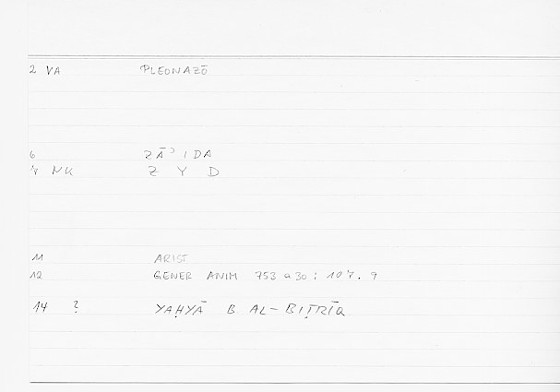 2 VA PLEONAZŌ
6 ZĀʾIDA
NK Z Y D
11 ARIST
12 GENER ANIM 753 a 30 : 107. 9
14 ? YAḤYĀ B AL-BIṬRĪQ